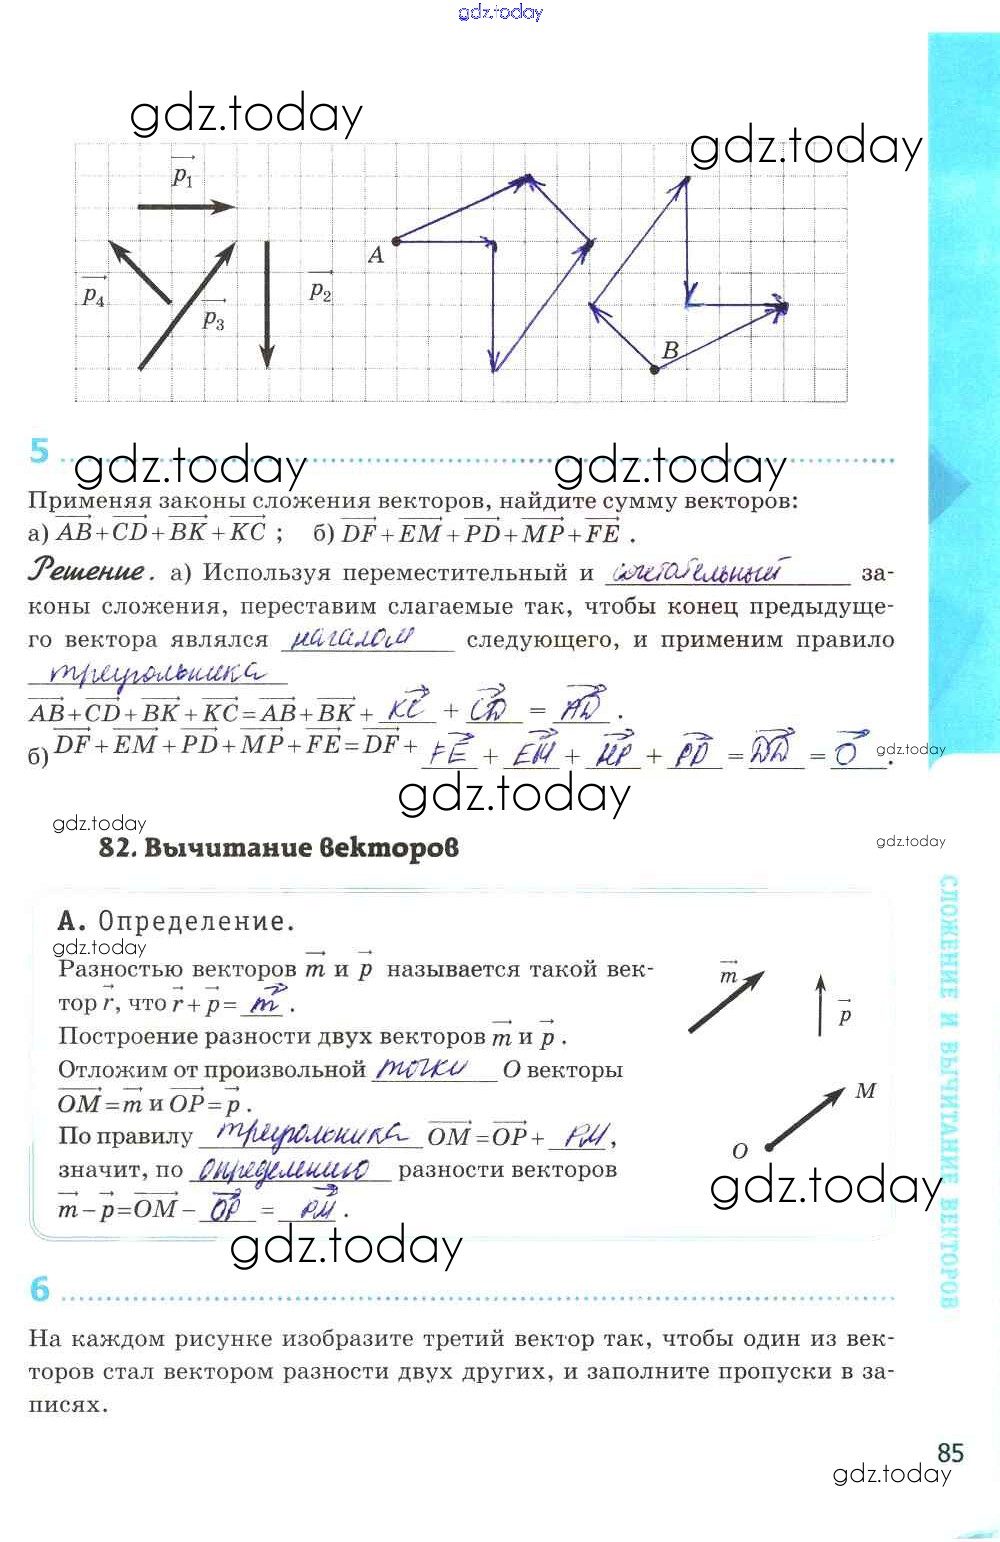 gdz.today
gdz.today
gdz.today
p₁
A
p₄
p₂
p₃
B
5
gdz.today gdz.today
Применяя законы сложения векторов, найдите сумму векторов:
а) AB+CD+BK+KC ; б) DF+EM+PD+MP+FE .
Решение. а) Используя переместительный и сочетательный за-
коны сложения, переставим слагаемые так, чтобы конец предыдуще-
го вектора являлся началом следующего, и применим правило
треугольника
AB+CD+BK+KC=AB+BK+ KC + CD = AD .
б) DF+EM+PD+MP+FE=DF+ FE + EM + MP + PD = DD = O .
gdz.today
gdz.today
gdz.today
82. Вычитание векторов
gdz.today
А. Определение.
gdz.today
Разностью векторов m и p называется такой век-
тор r, что r+p= m .
Построение разности двух векторов m и p .
Отложим от произвольной точки O векторы
OM=m и OP=p .
По правилу треугольника OM=OP+ PM ,
значит, по определению разности векторов
m−p=OM− OP = PM .
m
p
M
O
gdz.today
gdz.today
СЛОЖЕНИЕ И ВЫЧИТАНИЕ ВЕКТОРОВ
6
На каждом рисунке изобразите третий вектор так, чтобы один из век-
торов стал вектором разности двух других, и заполните пропуски в за-
писях.
85
gdz.today